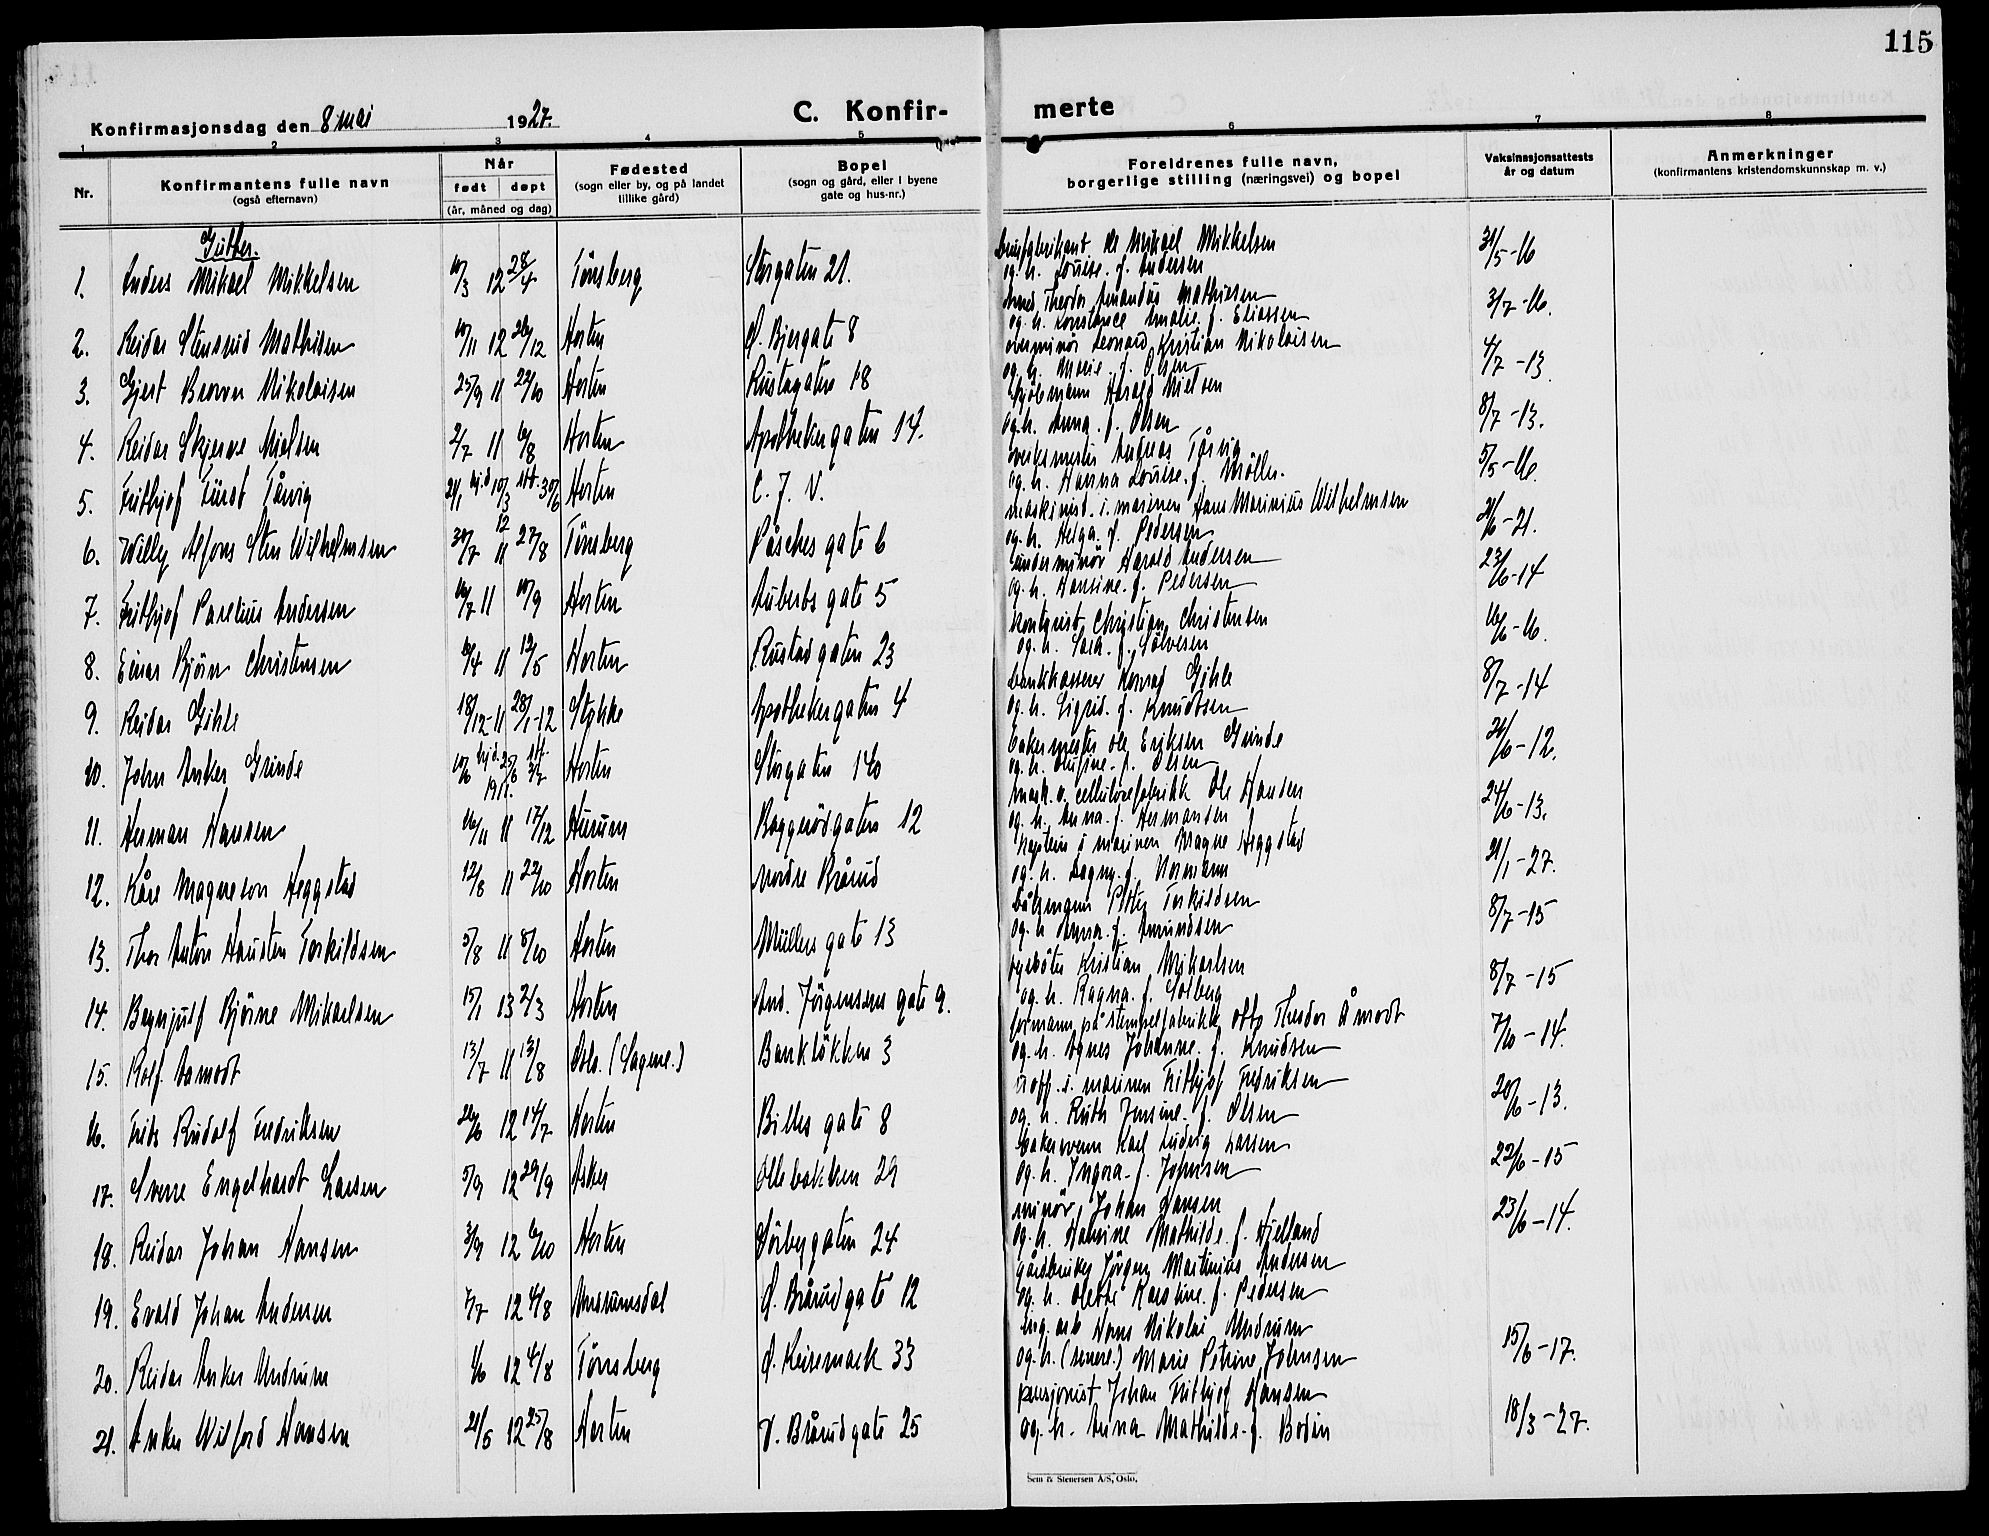 115
Konfirmasjonsdag den 8 mai 1927.
C. Konfir-
merte
1 2 3 4 5 6 7 8
Nr.
Konfirmantens fulle navn
(også efternavn)
Når
født døpt
(år, måned og dag)
Fødested
(sogn eller by, og på landet
tillike gård)
Bopel
(sogn og gård, eller i byene
gate og hus-nr.)
Foreldrenes fulle navn,
borgerlige stilling (næringsvei) og bopel
Vaksinasjonsattests
år og datum
Anmerkninger
(konfirmantens kristendomskunnskap m. v.)
Gutter.
1. Anders Mikael Mikkelsen 10/3 12 28/4 Tönsberg Storgaten 21.
Mikael Mikkelsen 31/5-16
og h. Louise. f. Andersen
2. Reidar Stensrud Mathisen 10/11 12 26/12 Horten Ø. Bjergate 8
Theodor Amandus Mathiesen 3/7-16.
og. h. Konstance Amalie. f. Eliassen
3. Gjert Brown Nikolaisen 25/9 11 22/10 Horten Rustagaten 18
overminör Leonard Kristian Nikolaisen 4/7-13
og h. Marie. f. Olsen
4. Reidar Skjerve Nielsen 2/7 11 6/8 Horten Apothekergaten 14.
Harald Nielsen 8/7-13.
og. h. Anna. f. Olsen
5. Frithjof Fürst Tårvig 21/1 hjd 10/3 stf. 30/6 12 Horten C. J. V.
verksmester Andreas Tårvig 5/5-16.
og. h. Hanna Louise. f. Möller.
6. Willy Alfons Sten Wilhelmsen 30/7 11 27/8 Tönsberg Påsches gate 6
maskinist. i. marinen Hans Marinius Wilhelmsen 21/6-21.
og. h. Helga. f. Pedersen
7. Frithjof Parelius Andersen 16/7 11 10/9 Horten Auberts gate 5
underminör Harald Andersen 23/6-14
og. h. Hansine. f. Pedersen
8. Einar Björn Christensen 6/4 11 12/5 Horten Rustadgaten 23
Christian Christensen 16/6-16.
og. h. f. Sölvesen
9. Reidar Gihle 18/12-11 28/1-12 Stokke Apothekergaten 4
bankkasserer Konrad Gihle 8/7-14
og. h. Sigrid. f. Knudtsen
10. John Anker Grinde 10/6 hjd. 25/6 stf. 3/7 1911. Horten Storgaten 140
bakermester Ole Eriksen Grinde 24/6-12.
og. h. f. Olsen
11. Herman Hansen 16/11 11 17/12 Hurum Baggerödgaten 12
mask. v. cellulosefabrikk Ole Hansen 24/6-13.
og. h. Anna. f. Hermansen
12. Kåre Magneson Heggstad 12/8 11 22/10 Horten Nordre Brårud
Kaptein i marinen Magne Heggstad 21/1-27.
og. h. Dagny. f. Normann
13. Thor Anton Hausten Torkildsen 5/8 11 8/10 Horten Müllers gate 13
båtsmann Peter Torkildsen 8/7-15
og. h. Anna. f. Amundsen
14. Bergljulf Björne Mikaelsen 15/1 13 2/3 Horten And. Jörgensens gate 9.
fyrböter Kristian Mikaelsen 8/7-15
og. h. Ragna. f. Solberg
15. Rolf. Aamodt 13/7 11 13/8 Oslo. (Sagene.) Banklökken 3
formann på stempelfabrikk Otto Theodor Åmodt 7/10-14.
og. h. Agnes Johanne. f. Knudsen
16. Frits Rudolf Fredriksen 26/6 12 14/7 Horten Billes gate 8
uoff. i. marinen Frithjof Fredriksen 20/6-13.
og. h. Ruth Jensine. f. Olsen
17. Sverre Engelhardt Larsen 5/9 12 29/9 Asker Ollebakken 29
bakersvenn Karl Ludvig Larsen 22/6-15
og. h. Ingora. f. Johnsen
18. Reidar Johan Hansen 3/9 12 6/10 Horten Sörbygaten 24
minör Johan Hansen 23/6-14.
og. h. Hansine Mathilde. f. Hjelland
19. Evald Johan Andersen /7 12 4/8 Undrumsdal Ø. Brårudgate 12
gårdbruker Jörgen Martinius Andersen
og. h. Olette Karoline. f. Pedersen
20. Reidar Anker Undrum 1/6 12 4/8 Tönsberg Ø. Keisemark 33
arb Hans Nikolai Undrum 15/6-17.
og. h. (senere.) Marie Petrine Johnsen
21. Anker Wilford Hansen 21/5 12 25/8 Horten V. Brårudgate 25
pensjonist Johan Frithjof Hansen 18/3-27.
og. h. Anna Mathilde. f. Bodin
Sem & Stenersen A/S, Oslo.